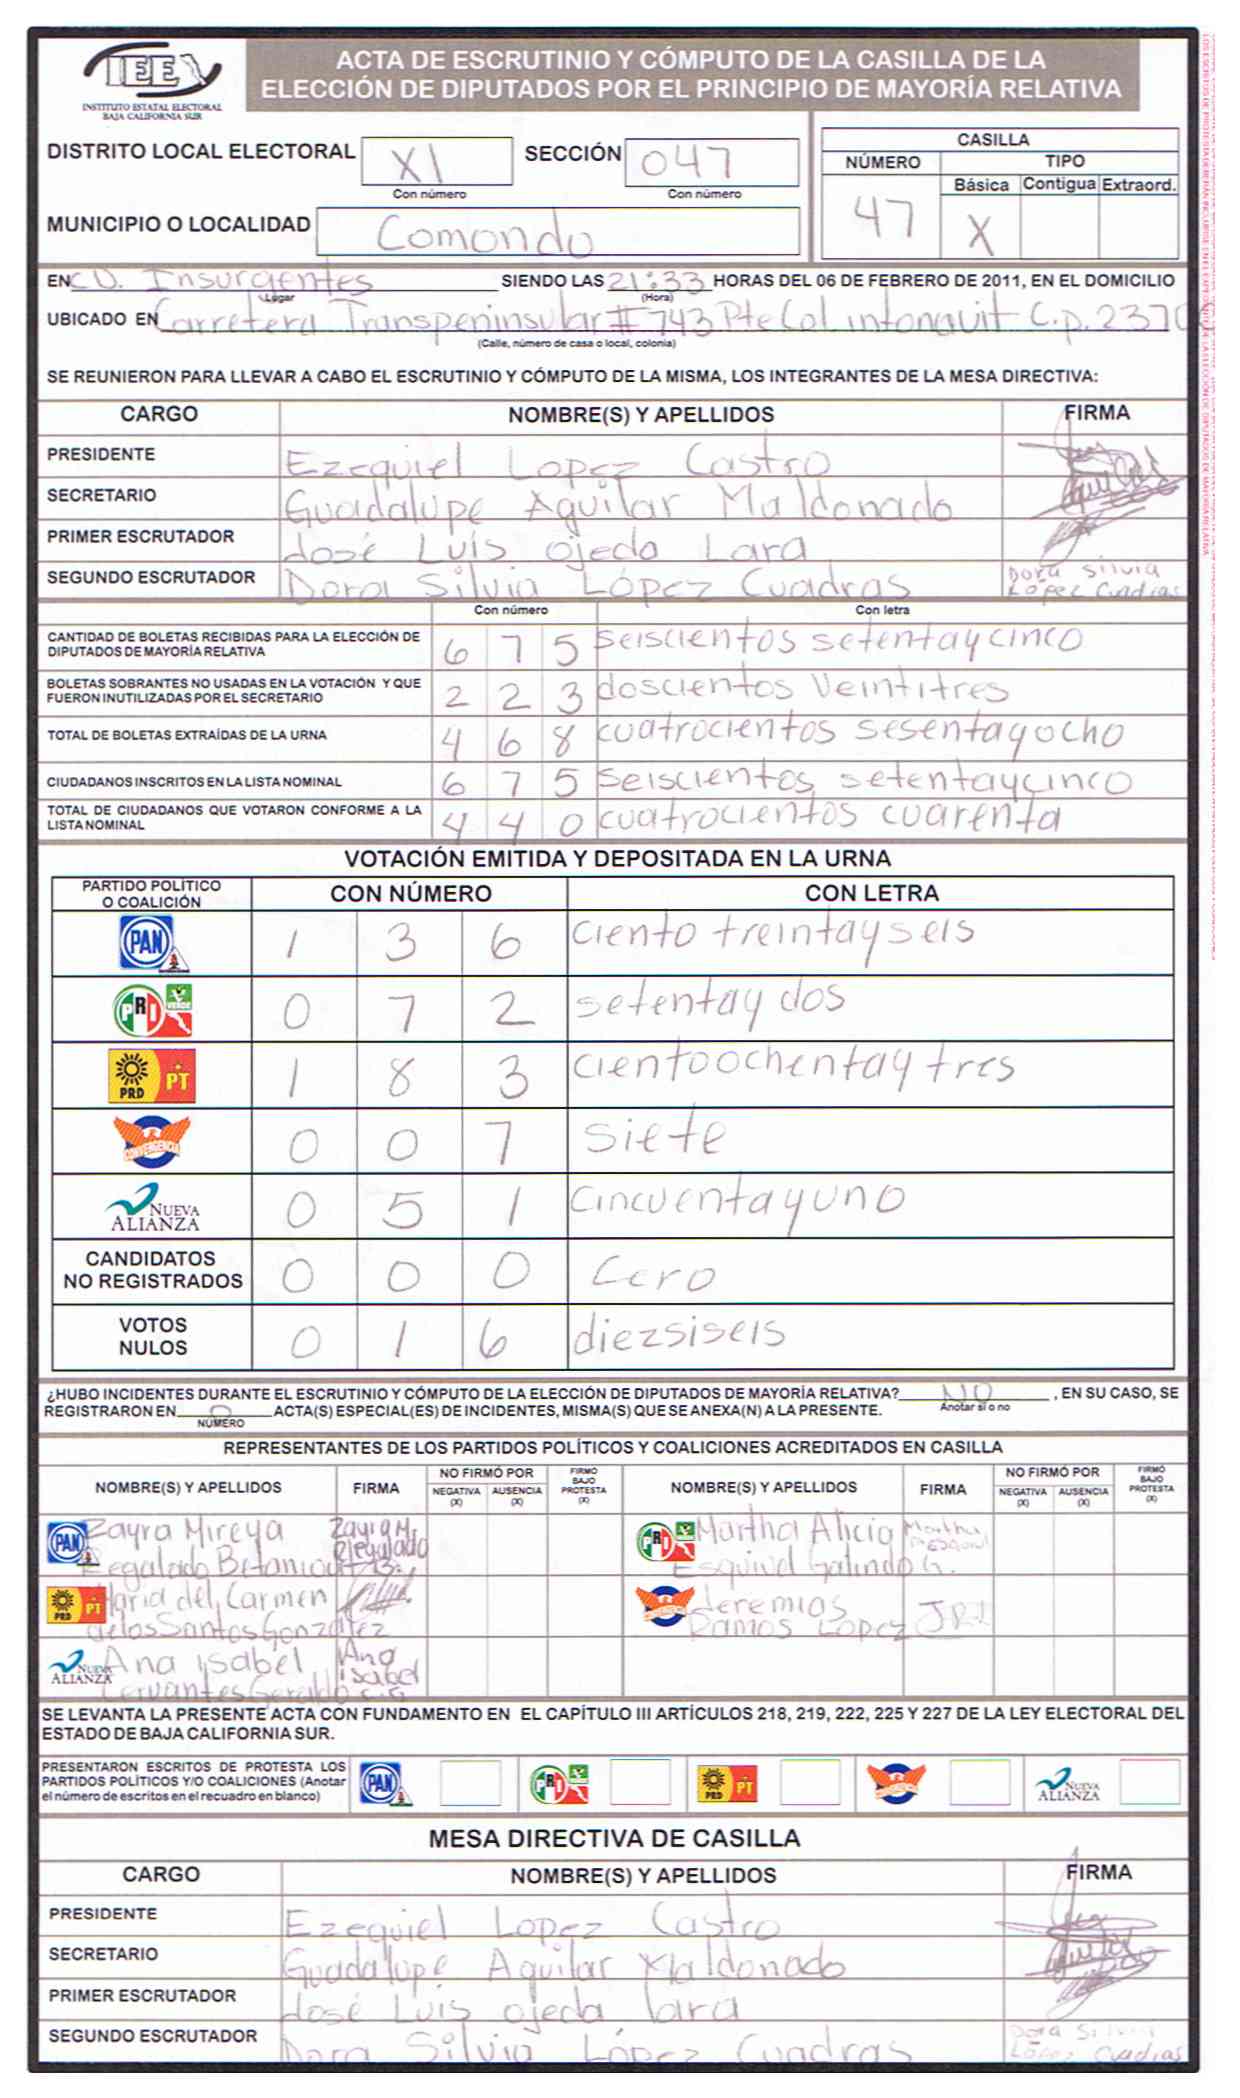 IEE
INSTITUTO ESTATAL ELECTORAL
BAJA CALIFORNIA SUR
ACTA DE ESCRUTINIO Y CÓMPUTO DE LA CASILLA DE LA
ELECCIÓN DE DIPUTADOS POR EL PRINCIPIO DE MAYORÍA RELATIVA
DISTRITO LOCAL ELECTORAL XI SECCIÓN 047
Con número Con número
MUNICIPIO O LOCALIDAD Comondu
CASILLA
NÚMERO TIPO
Básica Contigua Extraord.
47 X
EN CD. Insurgentes SIENDO LAS 21:33 HORAS DEL 06 DE FEBRERO DE 2011, EN EL DOMICILIO
Lugar (Hora)
UBICADO EN Carretera Transpeninsular # 743 Pte Col infonavit C.p. 23700
(Calle, número de casa o local, colonia)
SE REUNIERON PARA LLEVAR A CABO EL ESCRUTINIO Y CÓMPUTO DE LA MISMA, LOS INTEGRANTES DE LA MESA DIRECTIVA:
CARGO NOMBRE(S) Y APELLIDOS FIRMA
PRESIDENTE Ezequiel Lopez Castro
SECRETARIO Guadalupe Aguilar Maldonado
PRIMER ESCRUTADOR José Luís ojeda Lara
SEGUNDO ESCRUTADOR Dora Silvia López Cuadras Dora Silvia
López Cuadras
Con número Con letra
CANTIDAD DE BOLETAS RECIBIDAS PARA LA ELECCIÓN DE
DIPUTADOS DE MAYORÍA RELATIVA 6 7 5 seiscientos setentaycinco
BOLETAS SOBRANTES NO USADAS EN LA VOTACIÓN Y QUE
FUERON INUTILIZADAS POR EL SECRETARIO 2 2 3 doscientos Veintitres
TOTAL DE BOLETAS EXTRAÍDAS DE LA URNA 4 6 8 cuatrocientos sesentayocho
CIUDADANOS INSCRITOS EN LA LISTA NOMINAL 6 7 5 Seiscientos setentaycinco
TOTAL DE CIUDADANOS QUE VOTARON CONFORME A LA
LISTA NOMINAL 4 4 0 cuatrocientos cuarenta
VOTACIÓN EMITIDA Y DEPOSITADA EN LA URNA
PARTIDO POLÍTICO
O COALICIÓN CON NÚMERO CON LETRA
PAN 1 3 6 ciento treintayseis
PRI VERDE 0 7 2 setentay dos
PRD PT 1 8 3 cientoochentay tres
CONVERGENCIA 0 0 7 siete
NUEVA ALIANZA 0 5 1 cincuentayuno
CANDIDATOS
NO REGISTRADOS 0 0 0 Cero
VOTOS
NULOS 0 1 6 diezsiseis
¿HUBO INCIDENTES DURANTE EL ESCRUTINIO Y CÓMPUTO DE LA ELECCIÓN DE DIPUTADOS DE MAYORÍA RELATIVA? NO , EN SU CASO, SE
Anotar si o no
REGISTRARON EN 0 ACTA(S) ESPECIAL(ES) DE INCIDENTES, MISMA(S) QUE SE ANEXA(N) A LA PRESENTE.
NÚMERO
REPRESENTANTES DE LOS PARTIDOS POLÍTICOS Y COALICIONES ACREDITADOS EN CASILLA
NOMBRE(S) Y APELLIDOS FIRMA NO FIRMÓ POR NEGATIVA (X) AUSENCIA (X) FIRMÓ BAJO PROTESTA (X) NOMBRE(S) Y APELLIDOS FIRMA NO FIRMÓ POR NEGATIVA (X) AUSENCIA (X) FIRMÓ BAJO PROTESTA (X)
PAN Zayra Mireya Zayra M. PRI Martha Alicia Martha
Regalado Regalado Esquivel Galindo G.
PRD PT Maria del Carmen Jeremias
de los Santos Gonzalez Ramos Lopez JRL
NUEVA ALIANZA Ana isabel Ana
Cervantes isabel
SE LEVANTA LA PRESENTE ACTA CON FUNDAMENTO EN EL CAPÍTULO III ARTÍCULOS 218, 219, 222, 225 Y 227 DE LA LEY ELECTORAL DEL
ESTADO DE BAJA CALIFORNIA SUR.
PRESENTARON ESCRITOS DE PROTESTA LOS
PARTIDOS POLÍTICOS Y/O COALICIONES (Anotar
el número de escritos en el recuadro en blanco)
PAN PRI PRD PT NUEVA ALIANZA
MESA DIRECTIVA DE CASILLA
CARGO NOMBRE(S) Y APELLIDOS FIRMA
PRESIDENTE Ezequiel Lopez Castro
SECRETARIO Guadalupe Aguilar Maldonado
PRIMER ESCRUTADOR José Luis ojeda lara
SEGUNDO ESCRUTADOR Dora Silvia López Cuadras Dora Silvia
López Cuadras